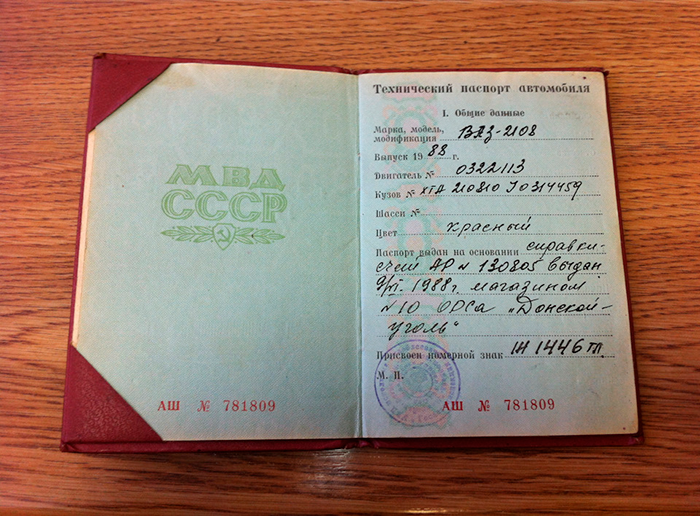 МВД
СССР
АШ № 781809
Технический паспорт автомобиля
I. Общие данные
Марка, модель, модификация ВАЗ-2108
Выпуск 19 88 г.
Двигатель № 0322113
Кузов № ХТА 210810 J0314459
Шасси №
Цвет красный
Паспорт выдан на основании справки-
счет АР № 130805 выдан
1988г. магазином
№10 ОРСа „Донской-
уголь"
Присвоен номерной знак 1446
М. П.
АШ № 781809